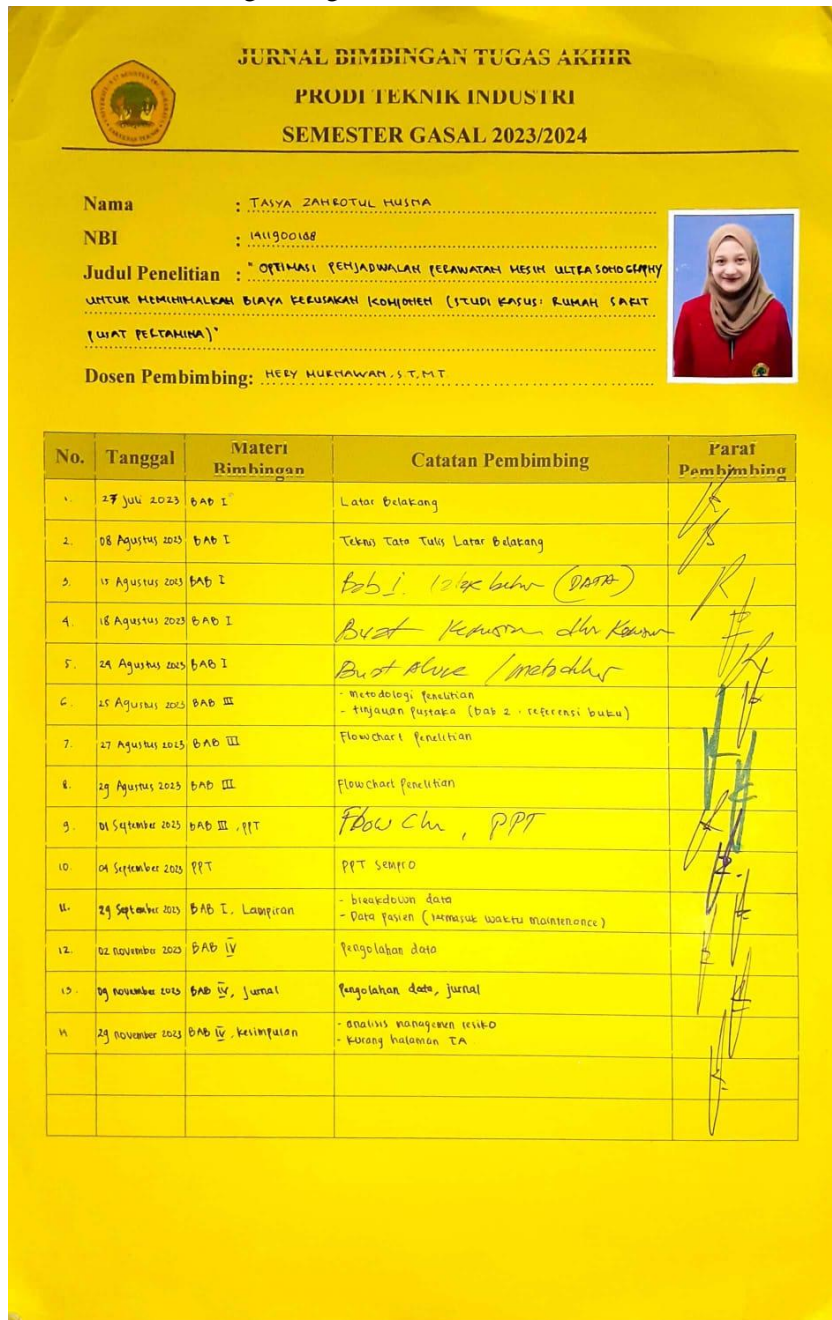 JURNAL BIMBINGAN TUGAS AKHIR
PRODI TEKNIK INDUSTRI
SEMESTER GASAL 2023/2024
Nama : TASYA ZAHROTUL HUSNA
NBI : 1411900188
Judul Penelitian : "OPTIMASI PENJADWALAN PERAWATAN MESIN ULTRASONOGRAPHY
UNTUK MEMINIMALKAN BIAYA KERUSAKAN KOMPONEN (STUDI KASUS: RUMAH SAKIT
PUSAT PERTAMINA)"
Dosen Pembimbing: HERY MURNAWAN, S.T, MT
No. Tanggal Materi Bimbingan Catatan Pembimbing Paraf Pembimbing
1. 27 Juli 2023 BAB I Latar Belakang
2. 08 Agustus 2023 BAB I Teknis Tata Tulis Latar Belakang
3. 15 Agustus 2023 BAB I Bab I. (DATA)
4. 18 Agustus 2023 BAB I Buat
5. 24 Agustus 2023 BAB I Buat
6. 25 Agustus 2023 BAB III - Metodologi Penelitian
- tinjauan pustaka (bab 2 - referensi buku)
7. 27 Agustus 2023 BAB III Flowchart Penelitian
8. 29 Agustus 2023 BAB III Flowchart Penelitian
9. 01 September 2023 BAB III, PPT Flow , PPT
10. 04 September 2023 PPT PPT Sempro
11. 29 September 2023 BAB I, Lampiran - breakdown data
- Data Pasien (termasuk waktu maintenance)
12. 02 November 2023 BAB IV Pengolahan data
13. 09 November 2023 BAB IV, Jurnal Pengolahan data, jurnal
14 29 November 2023 BAB IV, kesimpulan - analisis managemen resiko
- Kurang halaman TA